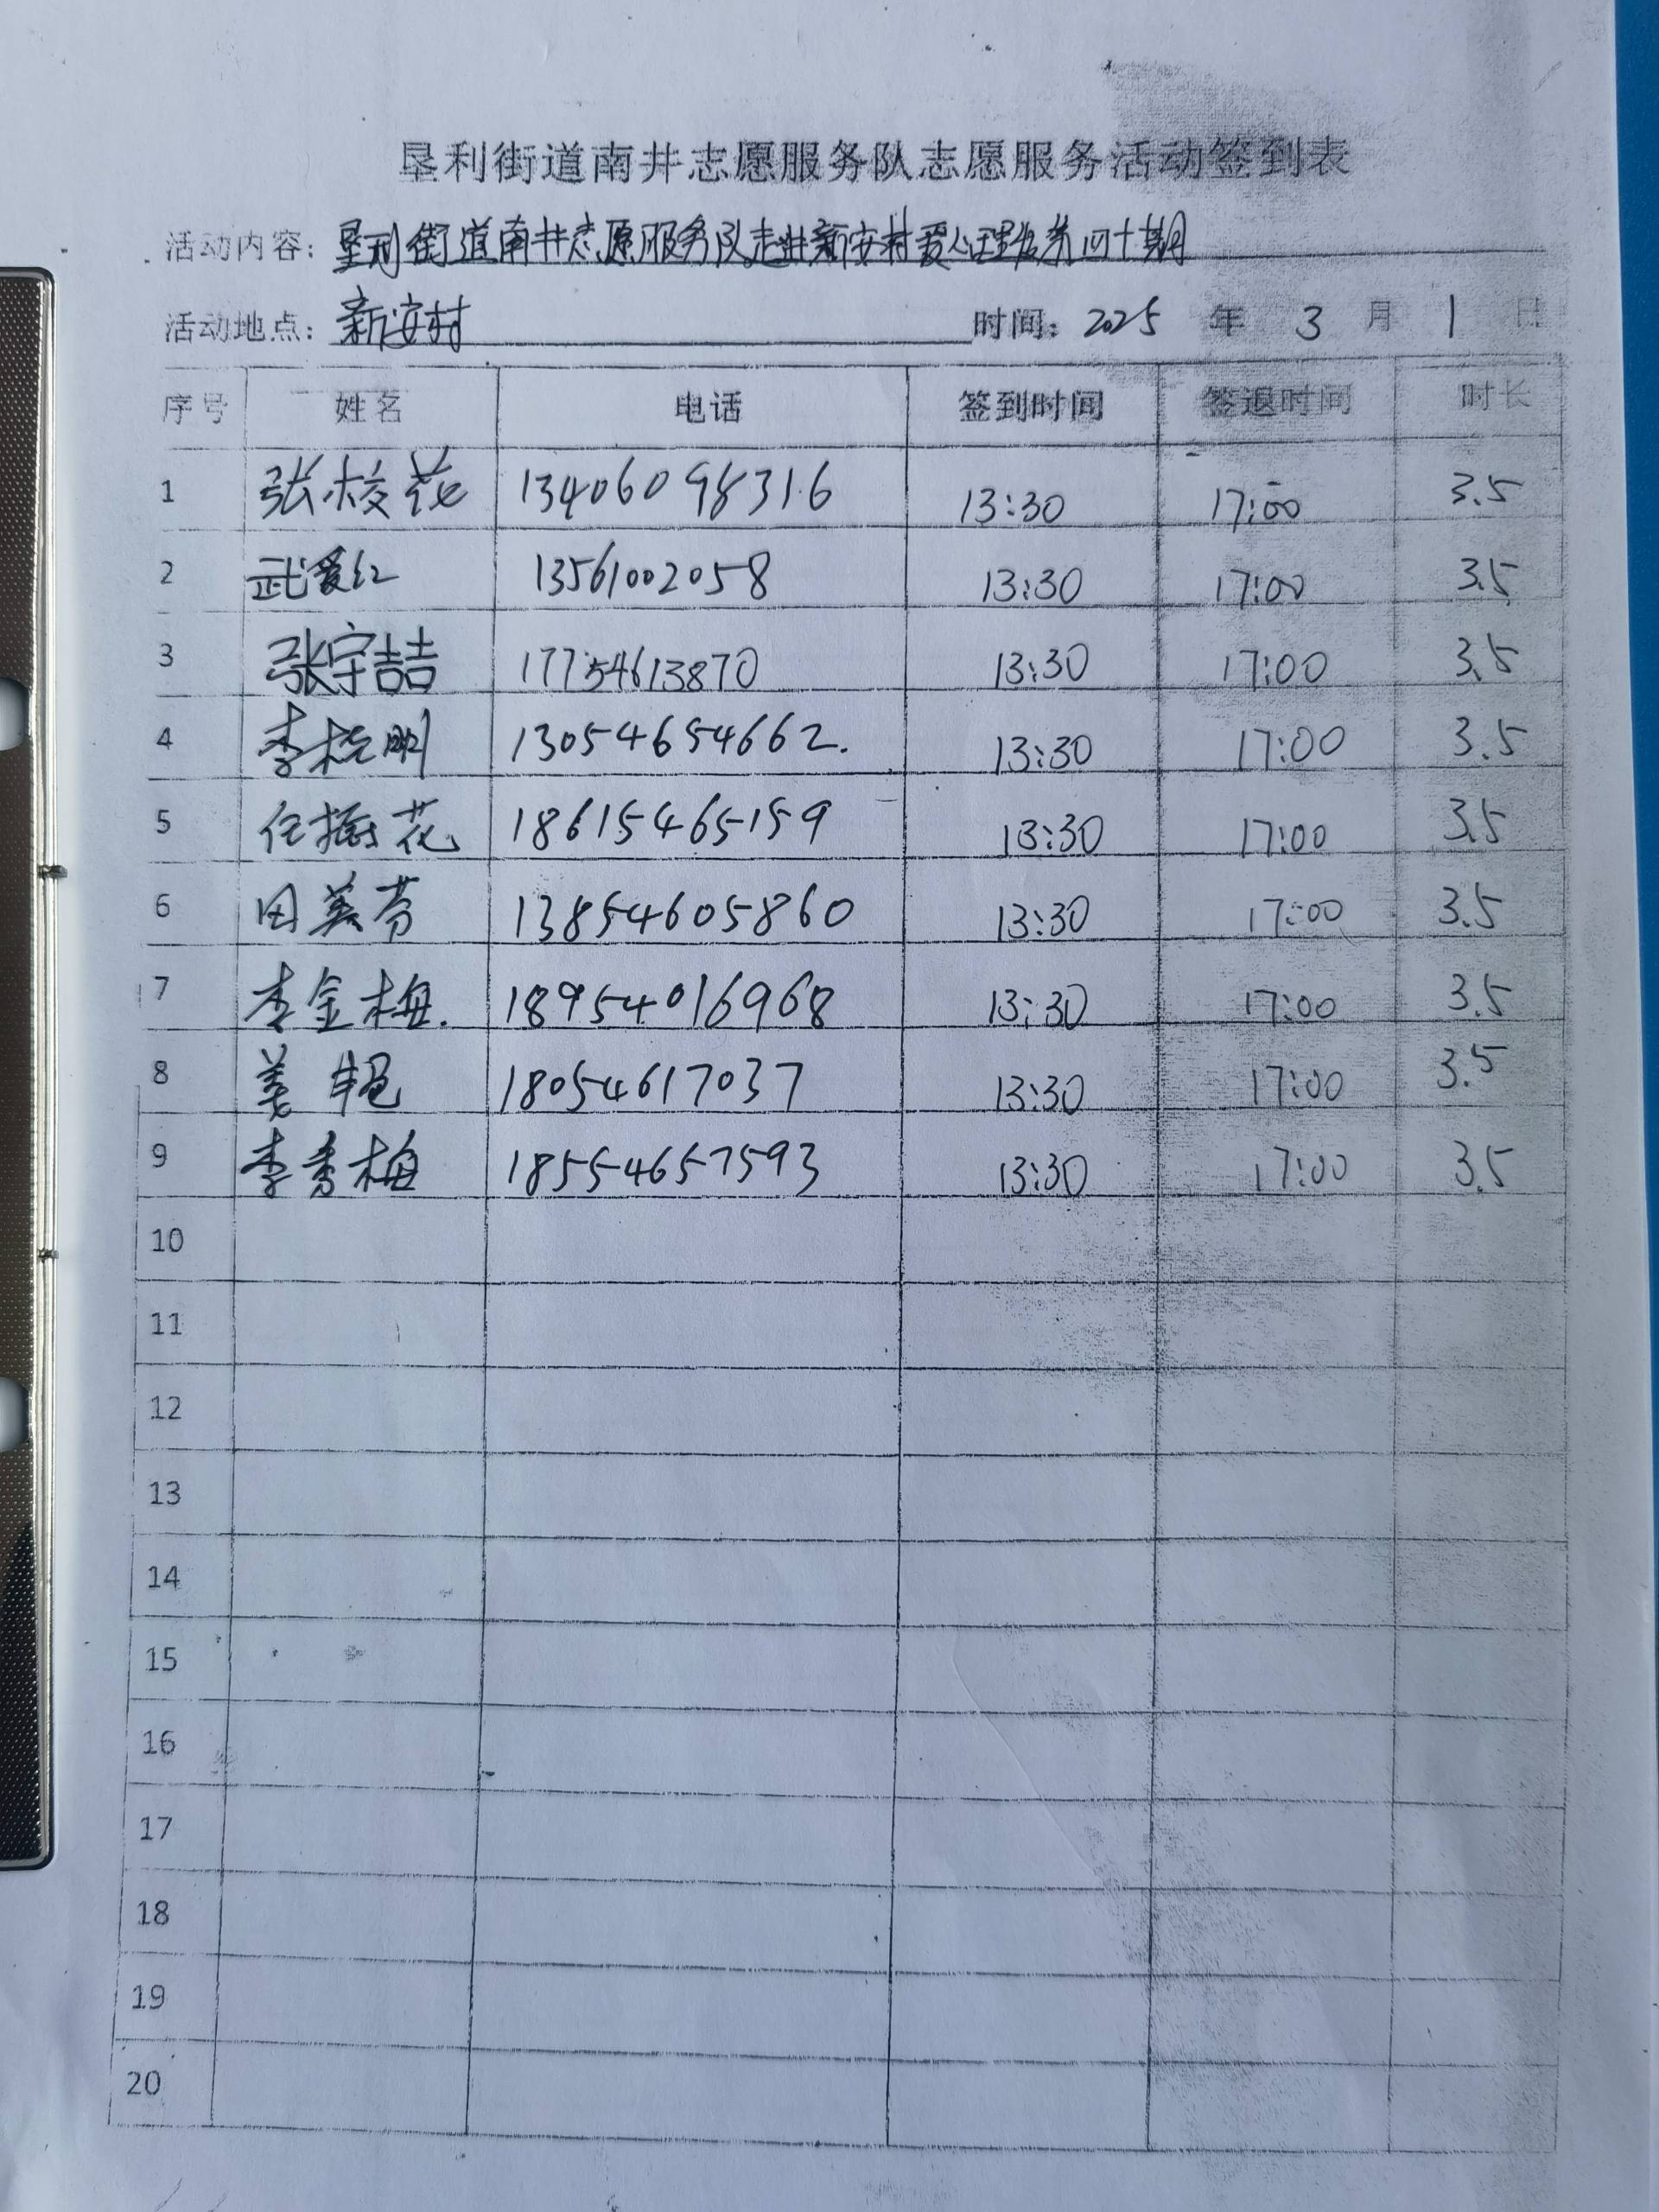 垦利街道南井志愿服务队志愿服务活动签到表
活动内容：垦利街道南井志愿服务队走进新安村爱心理发第四十期
活动地点：新安村 时间：2025 年 3 月 1 日
序号 姓名 电话 签到时间 签退时间 时长
1 张枝花 13406098316 13:30 17:00 3.5
2 武爱红 13561002058 13:30 17:00 3.5
3 张宇喆 17754613870 13:30 17:00 3.5
4 李 明 13054654662. 13:30 17:00 3.5
5 任振花 18615465159 13:30 17:00 3.5
6 田美芬 13854605860 13:30 17:00 3.5
7 李金梅. 18954016968 13:30 17:00 3.5
8 姜艳 18054617037 13:30 17:00 3.5
9 李秀梅 18554657593 13:30 17:00 3.5
10
11
12
13
14
15
16
17
18
19
20